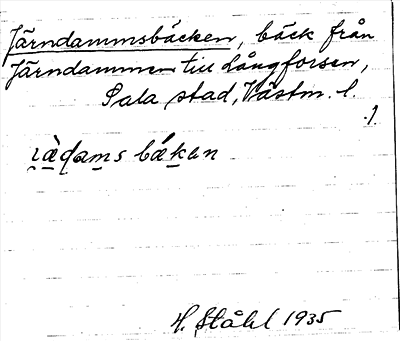 Järndammsbäcken, bäck från
Järndammen till Långforsen,
Sala stad, Västm. l.
1.
ɩä̀ɖam̱s bǽḵen
H. Ståhl 1935